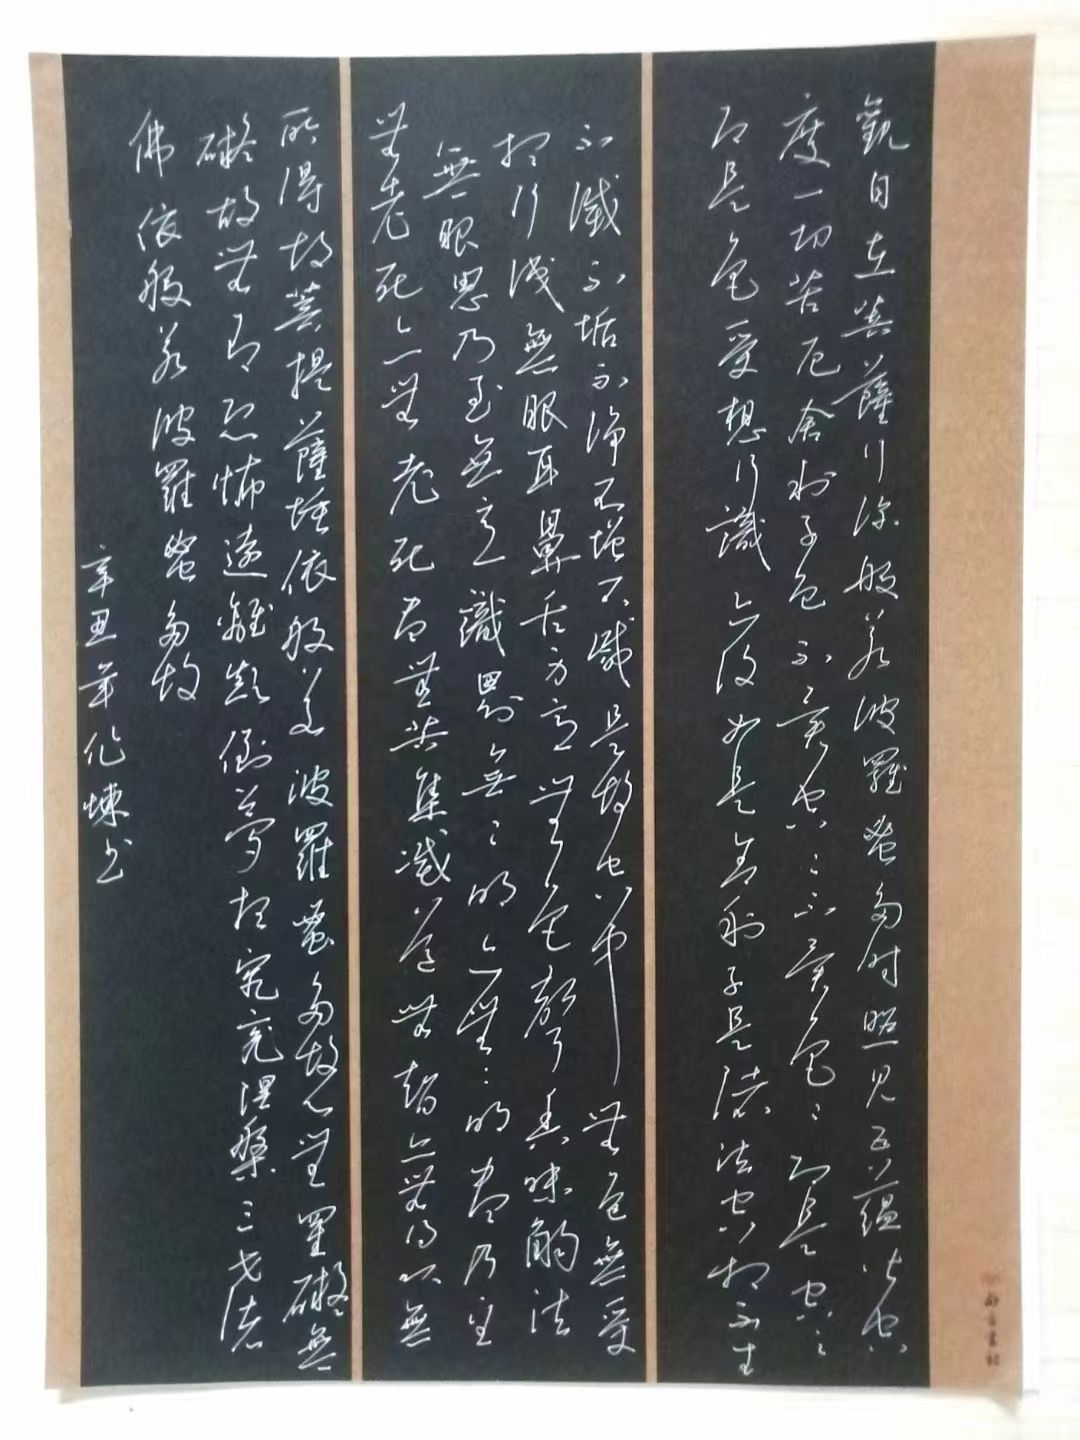 觀自在菩薩行深般若波羅蜜多時照見五蘊皆空
度一切苦厄舍利子色不異空〻不異色〻即是空〻
即是色受想行識亦復如是舍利子是諸法空相不生
不滅不垢不淨不增不減是故空中無色無受
想行識無眼耳鼻舌身意無色聲香味觸法
無眼界乃至無意識界無〻明亦無〻明盡乃至
無老死亦無老死盡無苦集滅道無智亦無得以無
所得故菩提薩埵依般若波羅蜜多故心無罣礙無
礙故無有恐怖遠離顛倒夢想究竟涅槃三世諸
佛依般若波羅蜜多故
辛丑年 煉書